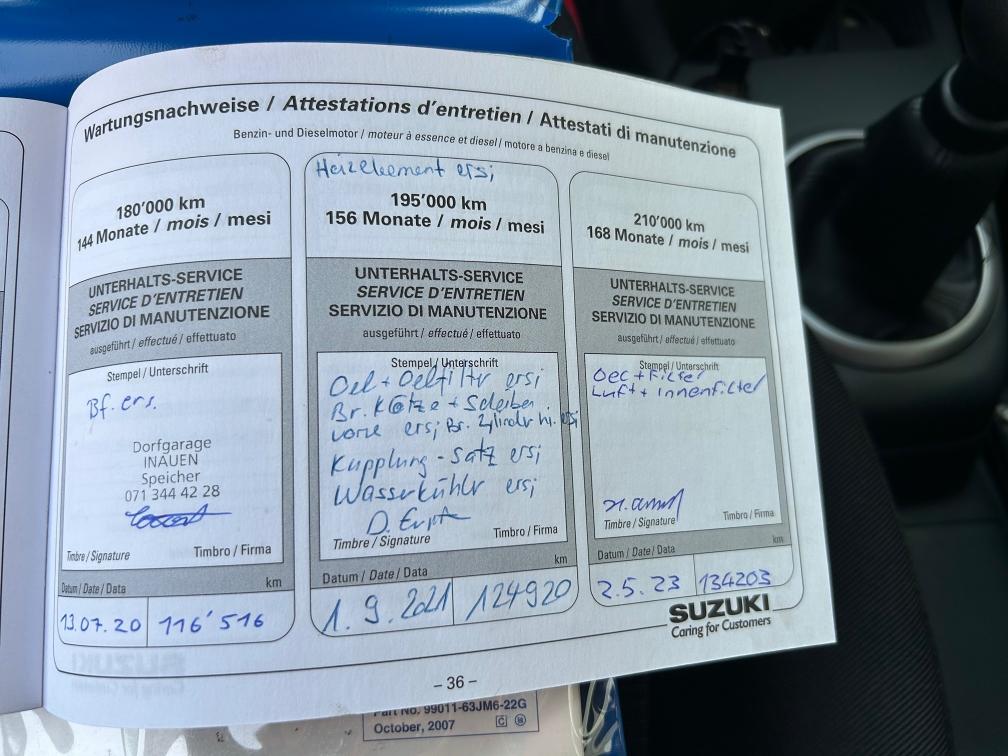 Wartungsnachweise / Attestations d'entretien / Attestati di manutenzione
Benzin- und Dieselmotor / moteur à essence et diesel / motore a benzina e diesel
180'000 km
144 Monate / mois / mesi
UNTERHALTS-SERVICE
SERVICE D'ENTRETIEN
SERVIZIO DI MANUTENZIONE
ausgeführt / effectué / effettuato
Stempel / Unterschrift
Bf. ers.
Dorfgarage
INAUEN
Speicher
071 344 42 28
Timbre / Signature Timbro / Firma
Datum / Date / Data km
13.07.20 116'516
Heizelement ersj
195'000 km
156 Monate / mois / mesi
UNTERHALTS-SERVICE
SERVICE D'ENTRETIEN
SERVIZIO DI MANUTENZIONE
ausgeführt / effectué / effettuato
Stempel / Unterschrift
Oel + Oelfilter ersj
Br. Klötze + Scheiben
vorne ersj Br. Zylinder hi. ersj
Kupplung - satz ersj
Wasserkühler ersj
Timbre / Signature Timbro / Firma
Datum / Date / Data km
1.9.2021 124920
210'000 km
168 Monate / mois / mesi
UNTERHALTS-SERVICE
SERVICE D'ENTRETIEN
SERVIZIO DI MANUTENZIONE
ausgeführt / effectué / effettuato
Stempel / Unterschrift
Oel + Filter
Luft + innenfilter
Timbre / Signature Timbro / Firma
Datum / Date / Data km
2.5.23 134203
SUZUKI
Caring for Customers
– 36 –
Part No. 99011-63JM6-22G
October, 2007